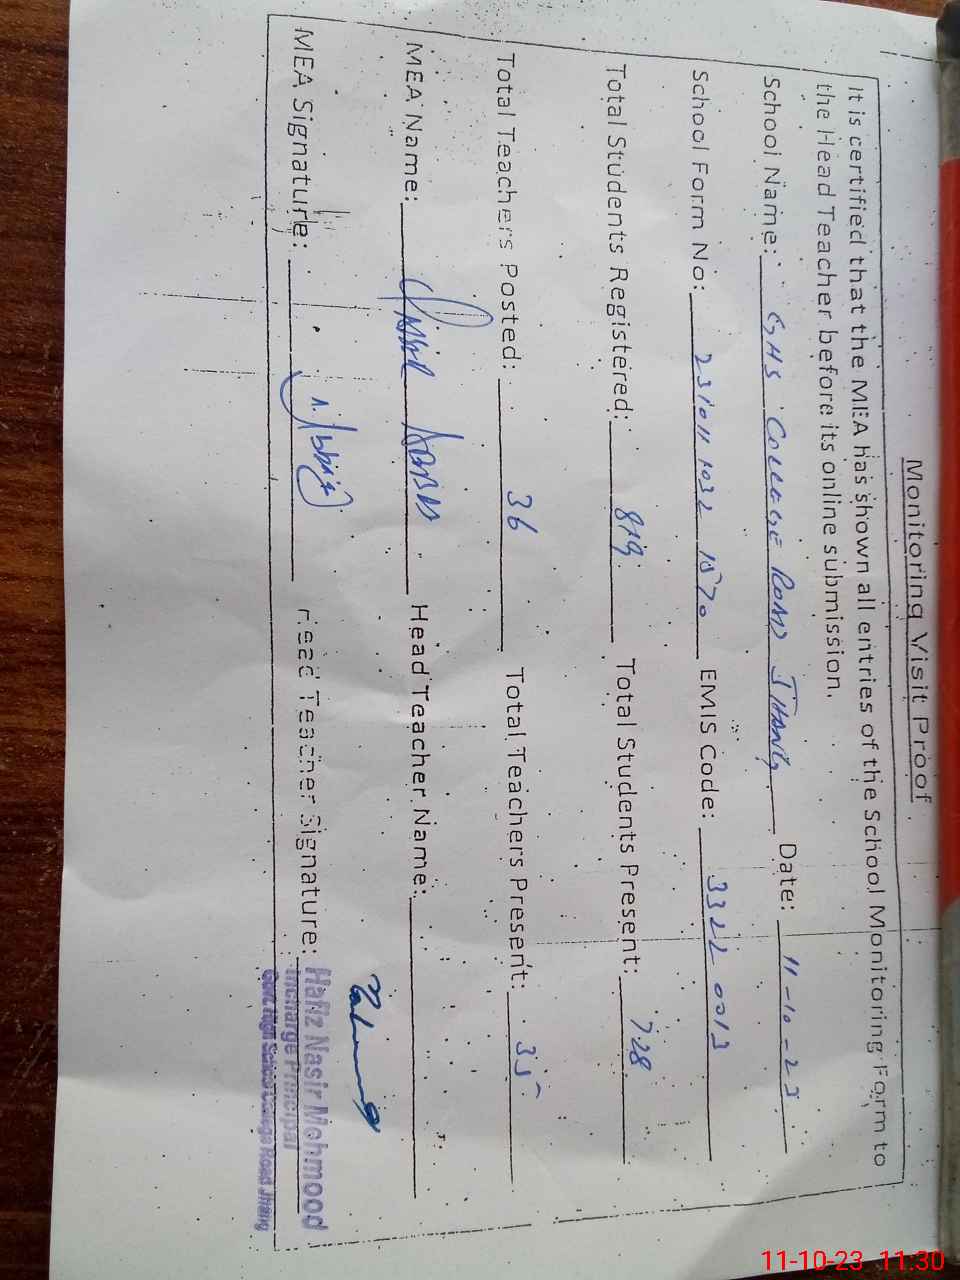 Monitoring Visit Proof
It is certified that the MEA has shown all entries of the School Monitoring Form to
the Head Teacher before its online submission.
School Name: GHS College Road Jhang Date: 11-10-23
School Form No: EMIS Code: 3322 0013
Total Students Registered: 819 Total Students Present: 728
Total Teachers Posted: 36 Total Teachers Present: 35
MEA Name: Abbas Head Teacher Name:
MEA Signature: Head Teacher Signature:
Hafiz Nasir Mehmood
Incharge Principal
Govt. High School College Road Jhang
11-10-23 11:30